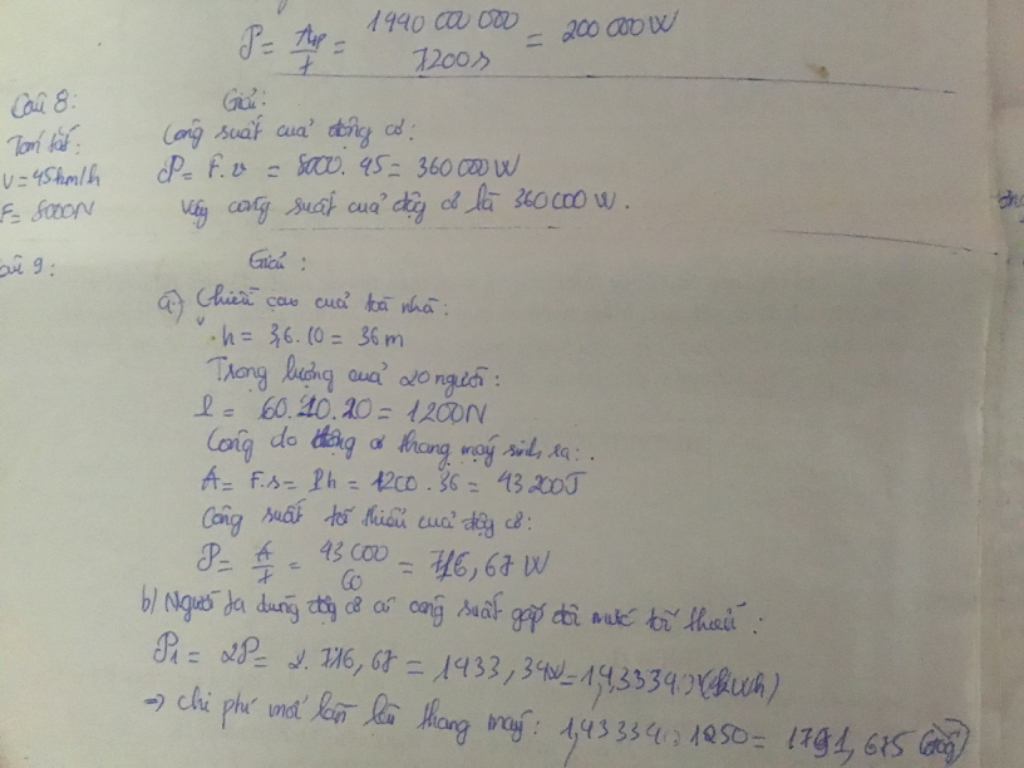 P = Atp/t = 1440 000 000/7200s = 200 000 W
Câu 8: Giải:
Tóm tắt: Công suất của động cơ:
v = 45km/h P = F.v = 8000. 45 = 360 000 W
F = 8000N Vậy công suất của động cơ là 360 000 W.
Câu 9: Giải:
a) Chiều cao của toà nhà:
h = 3,6.10 = 36m
Trọng lượng của 20 người:
P = 60.10.20 = 1200N
Công do động cơ thang máy sinh ra:
A = F.s = P.h = 1200.36 = 43 200J
Công suất tối thiểu của động cơ:
P = A/t = 43 000/60 = 716,67 W
b) Người ta dùng động cơ có công suất gấp đôi mức tối thiểu:
P1 = 2P = 2.716,67 = 1433,34W = 1,43334 (kWh)
⇒ chi phí mỗi lần lên thang máy: 1,43334.1250 = 1791,675 (đồng)